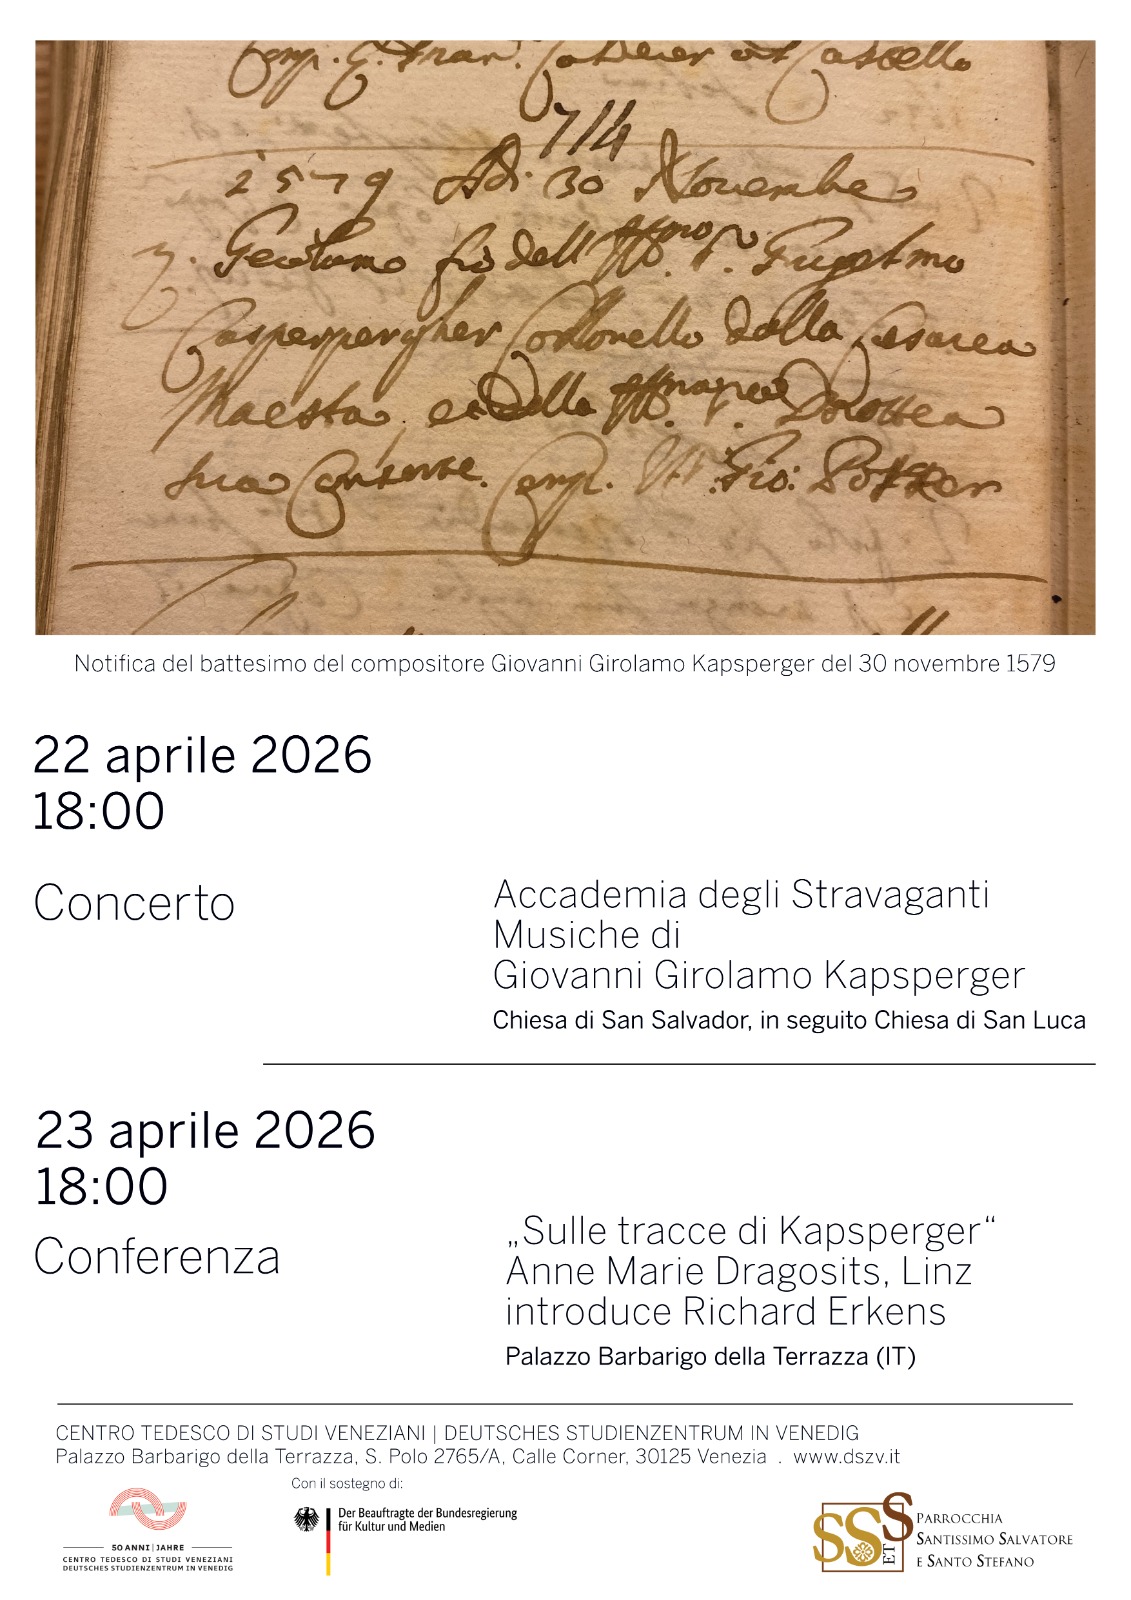 714
1579 Adi 30 Novembre
Gerolamo fio dell
Casperpergher Collonello dalla Cesarea
Maesta, et della Dorottea
sua Consorte. Gio:
Notifica del battesimo del compositore Giovanni Girolamo Kapsperger del 30 novembre 1579
22 aprile 2026
18:00
Concerto
Accademia degli Stravaganti
Musiche di
Giovanni Girolamo Kapsperger
Chiesa di San Salvador, in seguito Chiesa di San Luca
23 aprile 2026
18:00
Conferenza
„Sulle tracce di Kapsperger“
Anne Marie Dragosits, Linz
introduce Richard Erkens
Palazzo Barbarigo della Terrazza (IT)
CENTRO TEDESCO DI STUDI VENEZIANI | DEUTSCHES STUDIENZENTRUM IN VENEDIG
Palazzo Barbarigo della Terrazza, S. Polo 2765/A, Calle Corner, 30125 Venezia . www.dszv.it
Con il sostegno di:
50 ANNI | JAHRE
CENTRO TEDESCO DI STUDI VENEZIANI
DEUTSCHES STUDIENZENTRUM IN VENEDIG
Der Beauftragte der Bundesregierung
für Kultur und Medien
SS ET S
PARROCCHIA
SANTISSIMO SALVATORE
E SANTO STEFANO